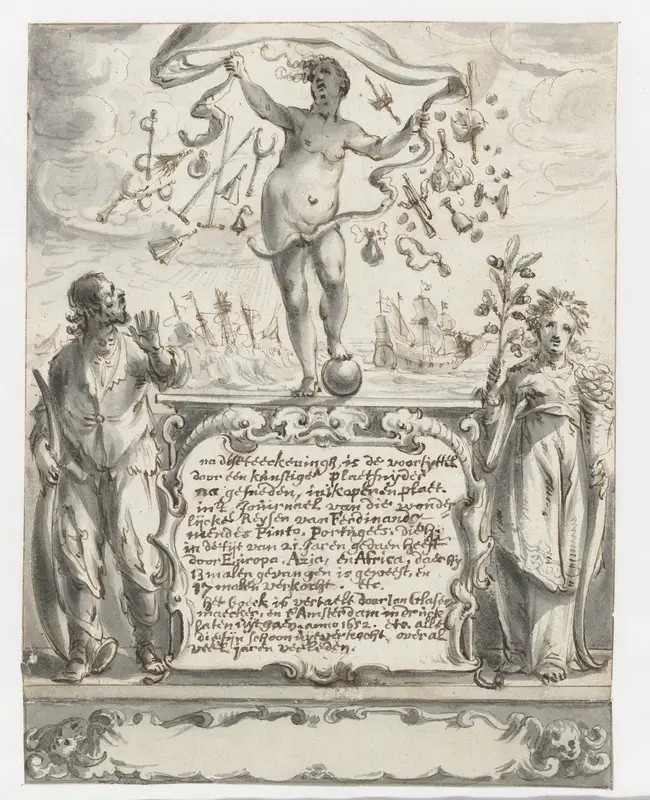 na dese teeckeningh, is de voortyttel
door een kunstigen plaetsnyder
na gesneden, in kopenen plaet.
in't Journael van die wonder
lijcke Reysen van Ferdinando
mendes Pinto, Portugees. die hij
in de tijt van 21. Jaren gedaen heeft
door Europa, Azia, en Africa, daer hij
13 malen gevangen is geweest, en
17 malen verkocht. etc.
Het boeck is vertaelt door Jan Glase
maecker, en t'Amsterdam in druck
laten uijtgaen. anno 1652. etc. alle
die sijn schoon uijtverkocht, over al
veele jaren verleden.